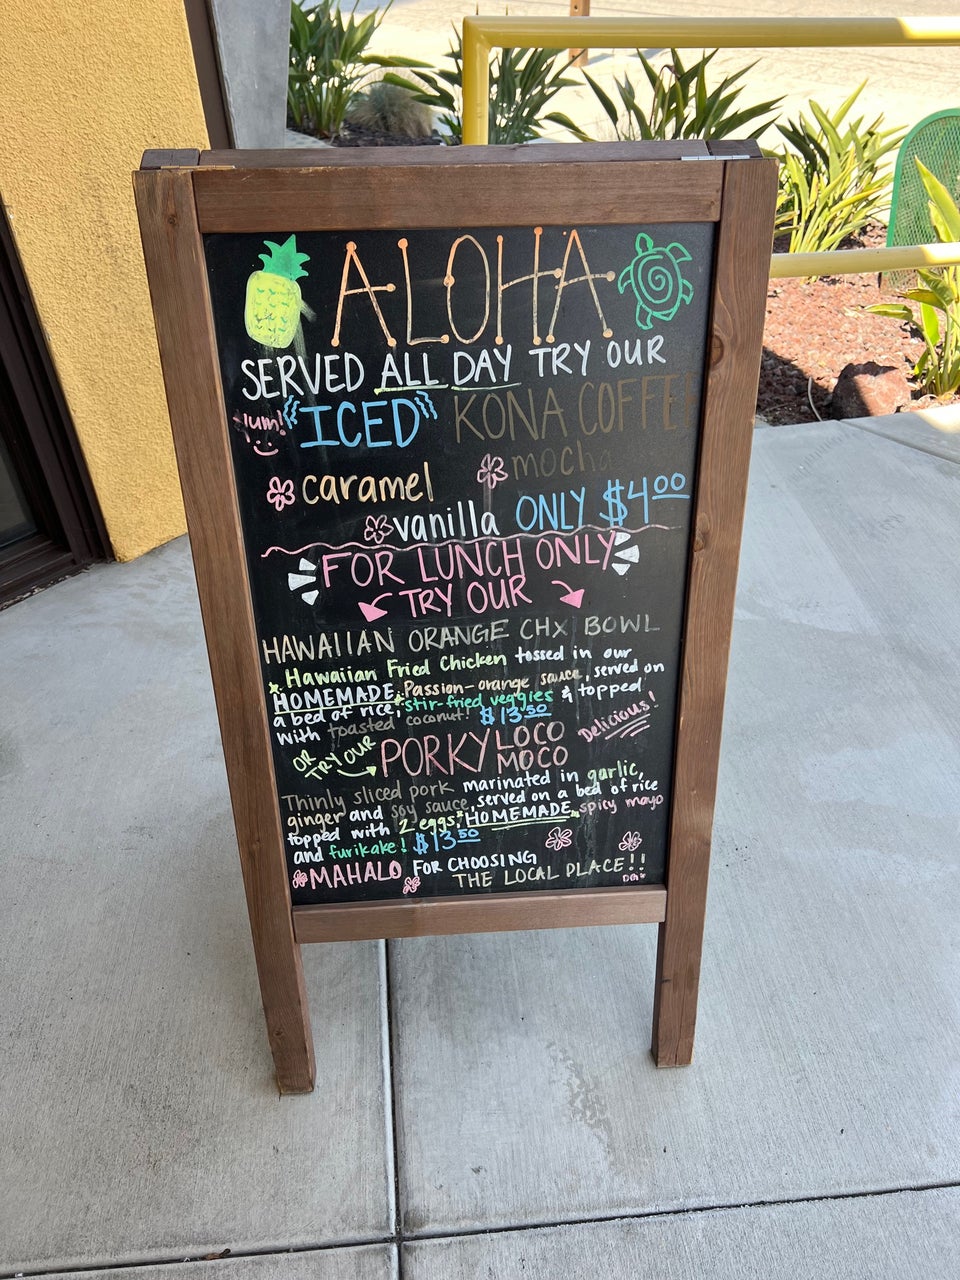 ALOHA
SERVED ALL DAY TRY OUR
Yum! "ICED" KONA COFFEE
caramel mocha
vanilla ONLY $4.00
FOR LUNCH ONLY
TRY OUR
HAWAIIAN ORANGE CHX BOWL
Hawaiian Fried Chicken tossed in our
*HOMEMADE* Passion-orange sauce, served on
a bed of rice, stir-fried veggies & topped
with toasted coconut! $13.50 Delicious!
OR TRY OUR PORKY LOCO MOCO
Thinly sliced pork marinated in garlic,
ginger and soy sauce, served on a bed of rice
topped with 2 eggs, *HOMEMADE* spicy mayo
and furikake! $13.50
MAHALO FOR CHOOSING
THE LOCAL PLACE!!